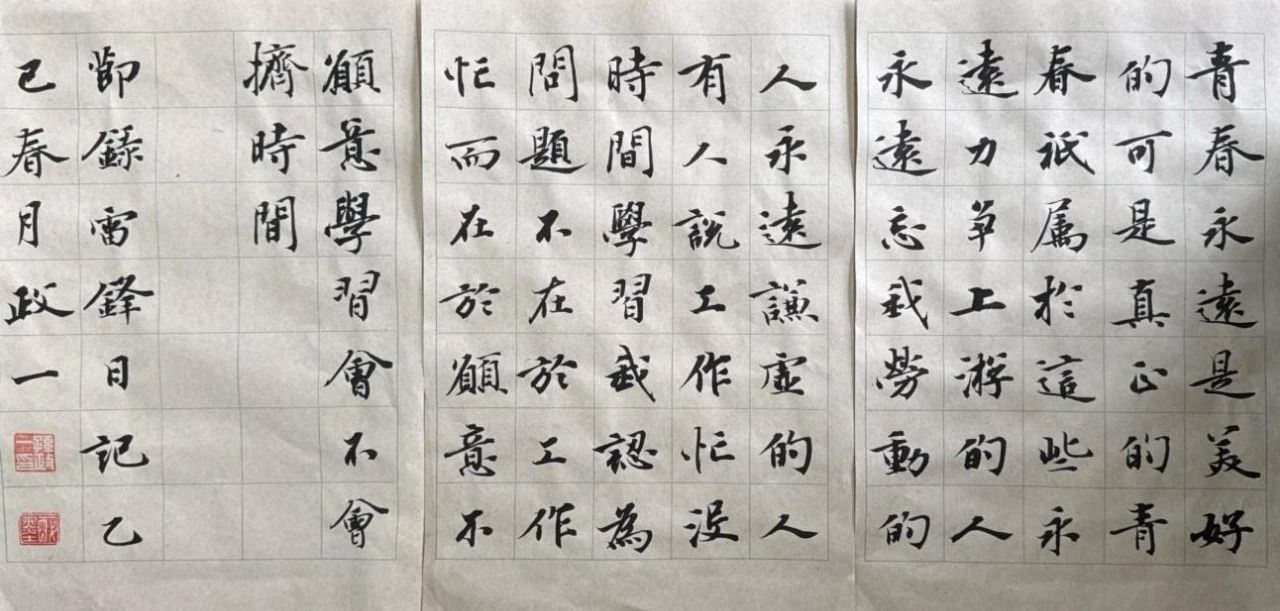 青春永遠是美好
的可是真正的青
春祇属於這些永
遠力争上游的人
永遠忘我勞動的
人永遠謙虛的人
有人說工作忙没
時間學習我認為
問題不在於工作
忙而在於願意不
願意學習會不會
擠時間
節錄雷鋒日記乙
巳春月政一